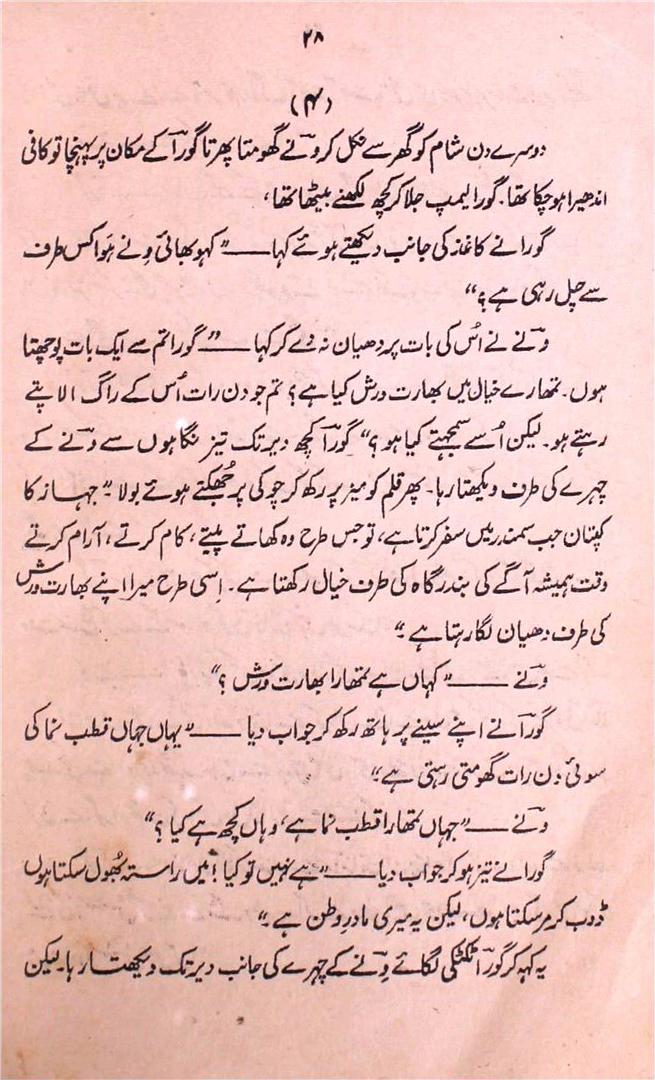 ۲۸
(۴)
دوسرے دن شام کو گھر سے نکل کر ونے گھومتا پھرتا گورا کے مکان پر پہنچا تو کافی
اندھیرا ہو چکا تھا۔ گورا لیمپ جلا کر کچھ لکھنے بیٹھا تھا،
گورا نے کاغذ کی جانب دیکھتے ہوئے کہا ــــ ”کہو بھائی وِنے ہَوا کس طرف
سے چل رہی ہے؟“
ونے نے اُس کی بات پر دھیان نہ دے کر کہا ــــ ”گورا تم سے ایک بات پوچھتا
ہوں۔ تمھارے خیال میں بھارت ورش کیا ہے؟ تم جو دن رات اُس کے راگ الاپتے
رہتے ہو۔ لیکن اُسے سمجھتے کیا ہو؟“ گورا کچھ دیر تک تیز نگاہوں سے ونے کے
چہرے کی طرف دیکھتا رہا۔ پھر قلم کو میز پر رکھ کر چوکی پر جُھکتے ہوئے بولا ”جہاز کا
کپتان جب سمندر میں سفر کرتا ہے، تو جس طرح وہ کھاتے پیتے، کام کرتے، آرام کرتے
وقت ہمیشہ آگے کی بندرگاہ کی طرف خیال رکھتا ہے۔ اِسی طرح میرا اپنے بھارت ورش
کی طرف دھیان لگا رہتا ہے۔“
ونے ــــ ”کہاں ہے تمھارا بھارت ورش؟“
گورا نے اپنے سینے پر ہاتھ رکھ کر جواب دیا ــــ ”یہاں جہاں قطب نما کی
سوئی دن رات گھومتی رہتی ہے۔“
ونے ــــ ”جہاں تمھارا قطب نما ہے، وہاں کچھ ہے کیا؟“
گورا نے تیز ہو کر جواب دیا ــــ ”ہے نہیں تو کیا! میں راستہ بُھول سکتا ہوں
ڈوب کر مر سکتا ہوں، لیکن یہ میری مادرِ وطن ہے۔“
یہ کہہ کر گورا ٹکٹکی لگائے وِنے کے چہرے کی جانب دیر تک دیکھتا رہا۔ لیکن